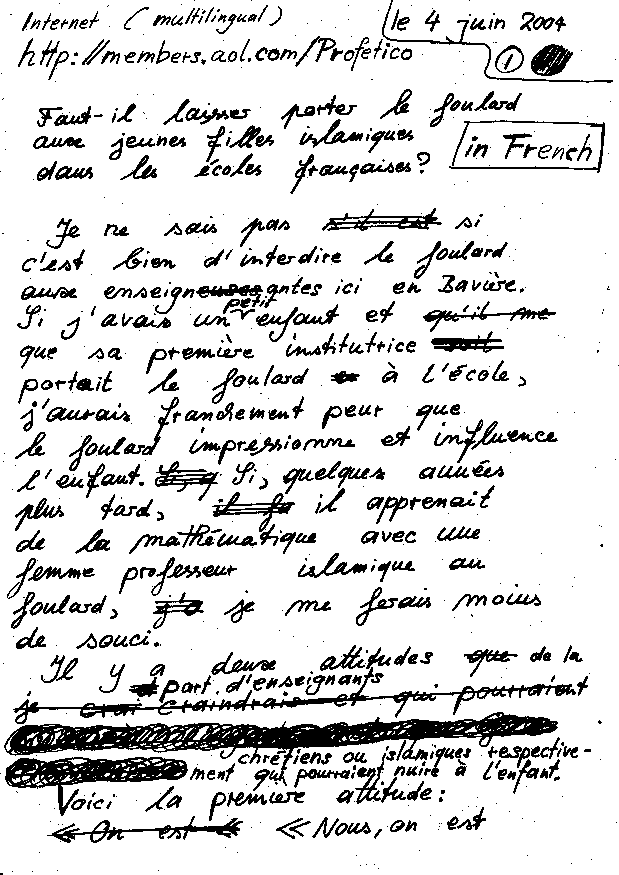 Internet (multilingual)
le 4 juin 2004
http://members.aol.com/Profetico
1
Faut-il laisser porter le foulard
aux jeunes filles islamiques
in French
dans les écoles françaises?
Je ne sais pas s'il est si
c'est bien d'interdire le foulard
aux enseigneuses antes ici en Bavière.
Si j'avais un petit enfant et qu'il me
que sa première institutrice soit
portait le foulard à l'école,
j'aurais franchement peur que
le foulard impressionne et influence
l'enfant. Si, q Si, quelques années
plus tard, il fa il apprenait
de la mathématique avec une
femme professeur islamique au
foulard, j'a je me ferais moins
de souci.
Il y a deux attitudes que de la
part d'enseignants
je crai craindrais et qui pourraient
chrétiens ou islamiques respective-
ment qui pourraient nuire à l'enfant.
Voici la première attitude:
« On est « « Nous, on est